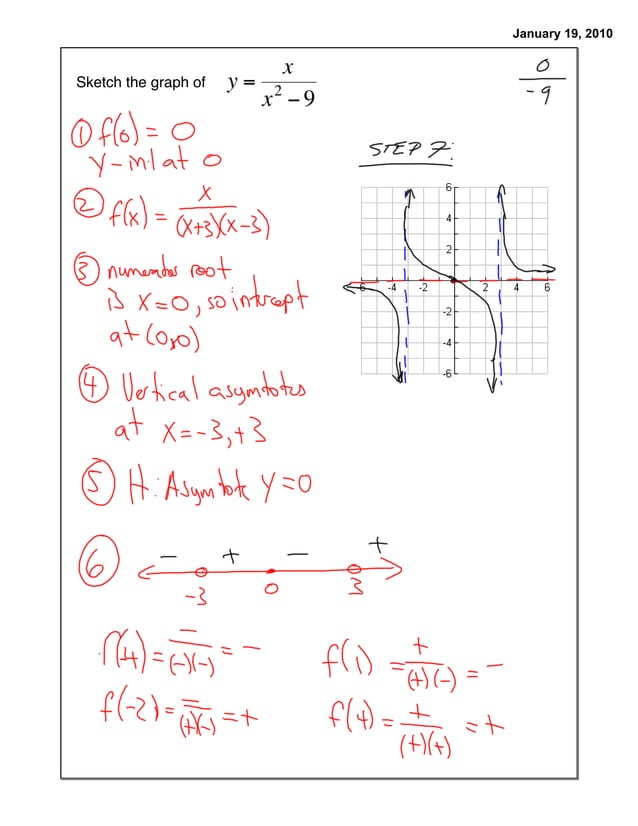 January 19, 2010
Sketch the graph of y = x / (x² – 9)
0 / -9
① f(0) = 0
y-int at 0
② f(x) = x / (x+3)(x-3)
③ numerator root
is x=0, so intercept
at (0,0)
④ Vertical asymtotes
at x = -3, +3
⑤ H. Asymtote y=0
STEP 7:
6
4
2
-6 -4 -2 2 4 6
-2
-4
-6
⑥ - + - +
-3 0 3
f(-4) = - / (-)(-) = -
f(1) = + / (+)(-) = -
f(-2) = - / (+)(-) = +
f(4) = + / (+)(+) = +